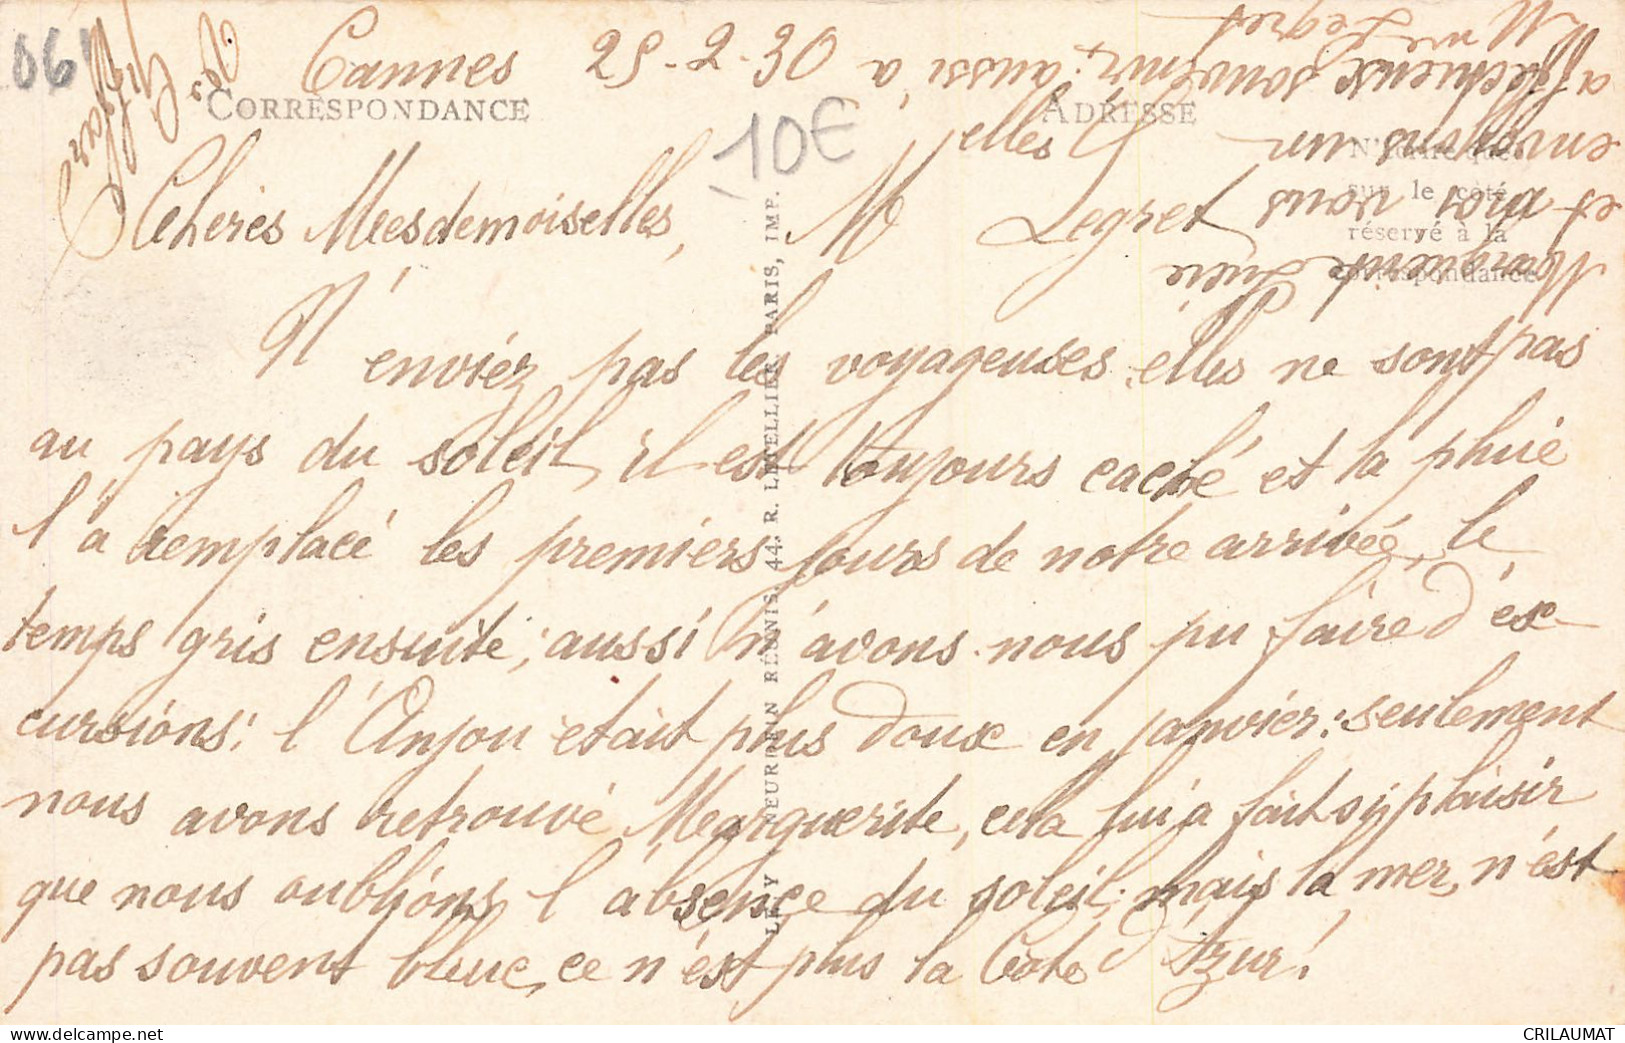 06
Cannes 25-2-30
CORRESPONDANCE
ADRESSE
10€
N'écrire que
sur le côté
réservé à la
correspondance
Cheres Mesdemoiselles,
N'enviez pas les voyageuses, elles ne sont pas
au pays du soleil, il est toujours caché et la pluie
l'a remplacé les premiers jours de notre arrivée, le
temps gris ensuite; aussi n'avons-nous pu faire d'ex-
cursions; l'Anjou etait plus doux en janvier: seulement
nous avons retrouvé Marguerite, cela lui a fait si plaisir
que nous oublions l'absence du soleil; mais la mer, n'est
pas souvent bleue, ce n'est plus la Cote d'Azur!
Marguerite Lucie
et moi vous
envoyons un
affectueux souvenir, aussi à
Melle Legret
Mme Legret
LEVY & NEURDEIN RÉUNIS, 44, R. LETELLIER, PARIS, IMP.
CRILAUMAT